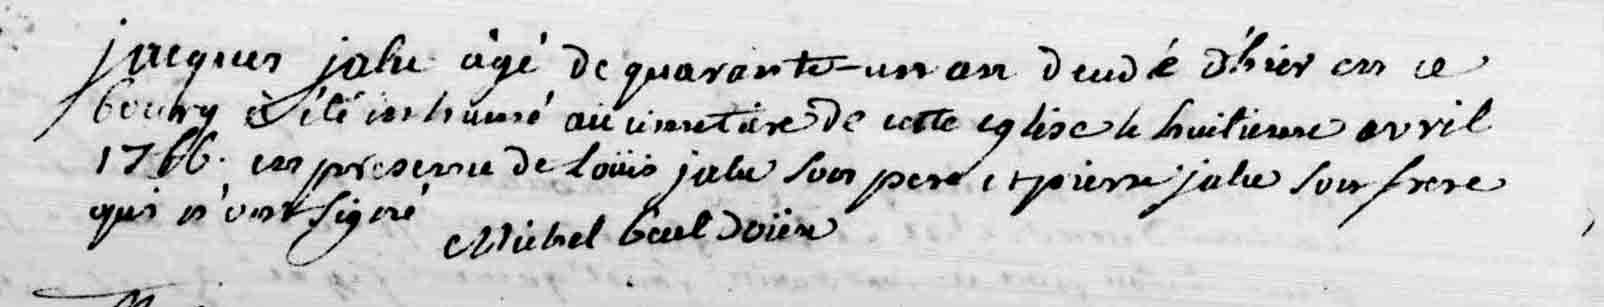 jacques jalu âgé de quarante-un an decudé d'hier en ce
bourg à été inhumé au cimetiere de cette eglise le huitieme avril
1766. en presence de loüis jalu son pere et pierre jalu son frere
qui n'ont signé
Michel doïen